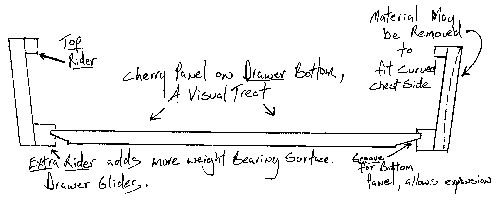 Top
Rider
Cherry Panel on Drawer Bottom,
A Visual Treat
Material May
be Removed
to
fit Curved
Chest Side
Extra Rider adds more weight Bearing Surface.
Drawer Glides.
Groove
for Bottom
Panel, allows expansion